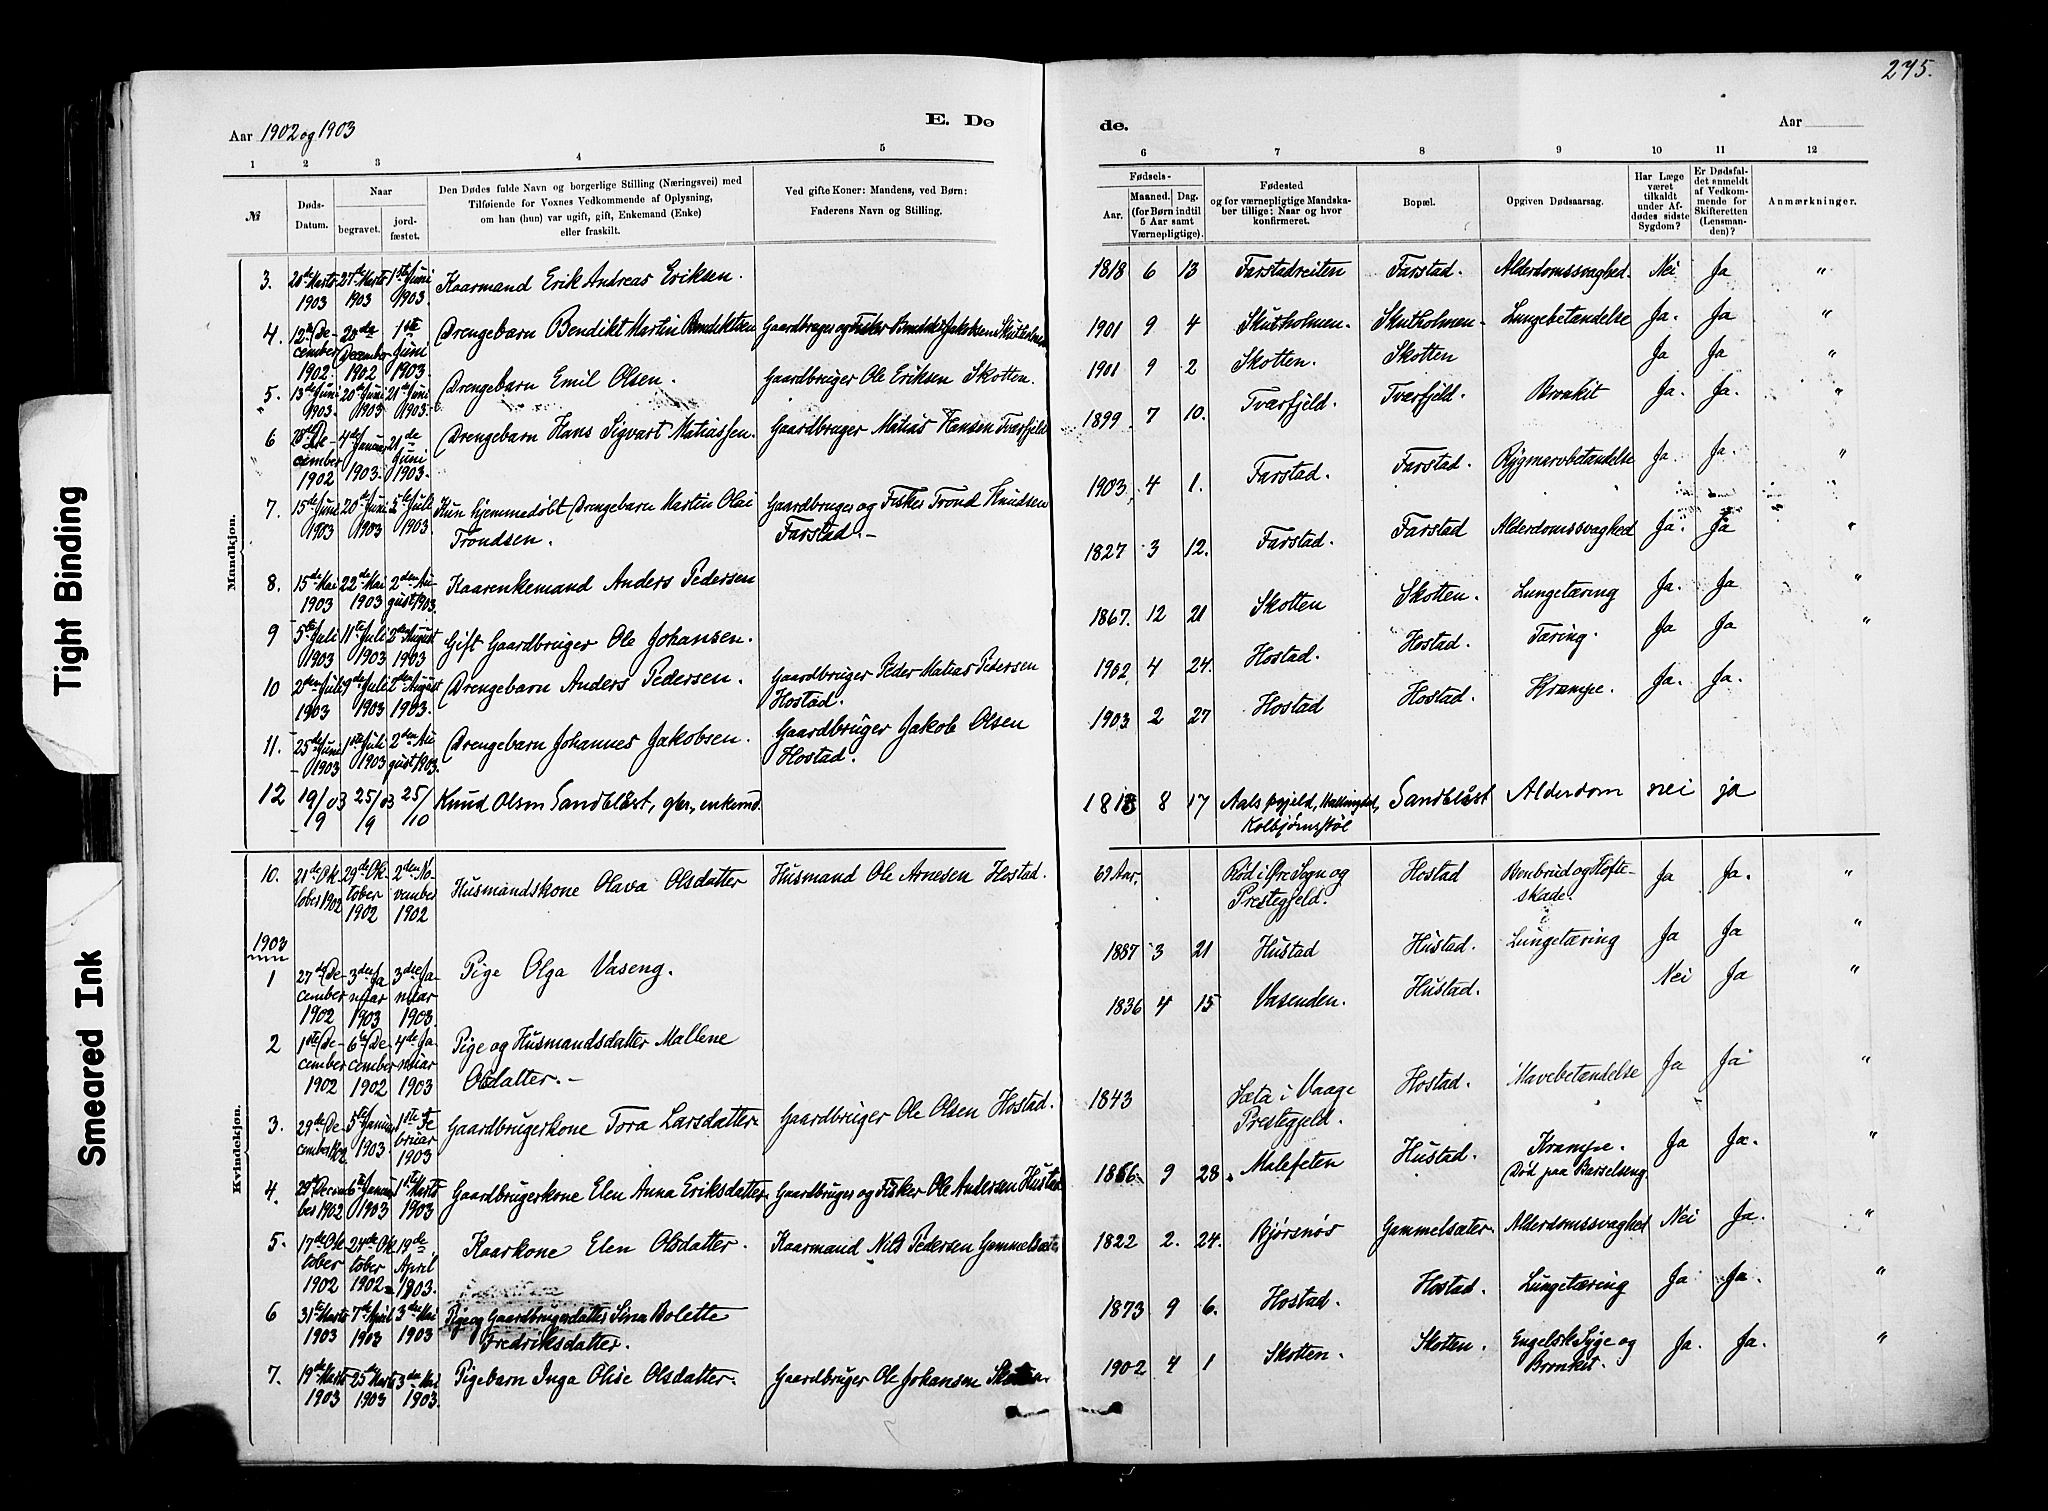 275.
Aar 1902 og 1903
E. Dø
de.
Aar
1 2 3 4 5 6 7 8 9 10 11 12
№
Døds-
Datum.
Naar
begravet.
jord-
fæstet.
Den Dødes fulde Navn og borgerlige Stilling (Næringsvei) med
Tilføiende for Voxnes Vedkommende af Oplysning,
om han (hun) var ugift, gift, Enkemand (Enke)
eller fraskilt.
Ved gifte Koner: Mandens, ved Børn:
Faderens Navn og Stilling.
Fødsels-
Aar.
Maaned. Dag.
(for Børn indtil
5 Aar samt
Værnepligtige).
Fødested
og for værnepligtige Mandska-
ber tillige: Naar og hvor
konfirmeret.
Bopæl.
Opgiven Dødsaarsag.
Har Læge
været
tilkaldt
under Af-
dødes sidste
Sygdom?
Er Dødsfal-
det anmeldt
af Vedkom-
mende for
Skifteretten
(Lensman-
den)?
Anmærkninger.
Mandkjøn.
3. 1903 27de Marts 1903 1ste Juni 1903. Kaarmand Erik Andreas Eriksen. 1818 6 13 Farstadreiten Farstad. Alderdomssvaghed. Nei Ja "
4. 12te December 1902. 20de December 1902 1ste Juni 1903. Drengebarn Bendikt Martin Bendiktsen Gaardbruger og Fisker Bendikt Jakobsen Skutholmen 1901 9 4 Skutholmen. Skutholmen. Lungebetændelse Ja. Ja "
5. 13de Juni 1903. 20de Juni 1903 21de Juni 1903. Drengebarn Emil Olsen. Gaardbruger Ole Eriksen Skotten. 1901 9 2 Skotten. Skotten Ja Ja "
6 28de December 1902 4de Januar 1903. 21de Juni 1903. Drengebarn Hans Sigvart Matiassen. Gaardbruger Matias Hansen Tværfjeld 1899 7 10. Tværfjeld. Tværfjeld. Bronkit Ja. Ja. "
7. 15de Juni 1903 20de Juni 1903 5te Juli 1903. Kun hjemmedøbt Drengebarn Martin Olai
Trondsen. Gaardbruger og Fisker Trond Knudsen
Farstad. 1903. 4 1. Farstad. Farstad. Rygmarvbetændelse Ja. Ja. "
8. 15de Mai 1903 22de Mai 1903 2den August 1903. Kaarenkemand Anders Pedersen 1827 3 12. Farstad. Farstad Alderdomssvaghed Ja. Ja "
9 5te Juli 1903 11te Juli 1903 2den August 1903 Gift Gaardbruger Ole Johansen. 1867. 12 21 Skotten Skotten. Lungetæring Ja. Ja "
10 2den Juli 1903 9de Juli 1903 2den August 1903. Drengebarn Anders Pedersen. Gaardbruger Peder Matias Pedersen
Hostad. 1902. 4 24. Hostad. Hostad. Tæring. Ja Ja "
11. 25de Juni 1903 1ste Juli 1903 2den August 1903. Drengebarn Johannes Jakobsen. Gaardbruger Jakob Olsen
Hostad. 1903. 2 27 Hostad Hostad. Krampe. Ja. Ja.
12 19/9 03 25/9 03 25/10 Knud Olsen Sandblåst, gbr., enkemd. 1813 8 17 Aals prgjeld, Hallingdal,
Kolbjørnstøl Sandblåst Alderdom nei ja
Kvindekjøn.
10. 21de Oktober 1902 29de Oktober 1902 2den November 1902 Husmandskone Olava Olsdatter Husmand Ole Arnesen Hostad. 69 Aar. Rød i Øre Sogn og
Prestegjeld. Hostad Benbrud og Hofte-
skade. Ja Ja. "
1903
1 27de December 1902 3de Januar 1903 3de Januar 1903. Pige Olga Vaseng. 1887 3 21 Hustad Hustad. Lungetæring Ja Ja "
2 1ste December 1902 6te December 1902 4de Januar 1903 Pige og Husmandsdatter Mallene
Olsdatter. 1836 4 15 Vasenden. Hustad. Nei Ja "
3. 29de December 1902 5te Januar 1903 1ste Februar 1903 Gaardbrugerkone Tora Larsdatter Gaardbruger Ole Olsen Hostad. 1843 Sæta i Vaage
Prestegjeld. Hostad. Mavebetændelse Ja Ja "
4. 29de December 1902 6te Januar 1903 1ste Marts 1903 Gaardbrugerkone Elen Anna Eriksdatter Gaardbruger og Fisker Ole Andersen Hustad 1866. 9 28. Malefeten Hustad. Krampe.
Død paa Barselseng. Ja Ja. "
5. 17de Oktober 1902 24de Oktober 1902 19de April 1903. Kaarkone Elen Olsdatter. Kaarmand Nils Pedersen Gammelsæter 1822 2. 24. Bjørsnøs Gammelsæter. Alderdomssvaghed Nei Ja. "
6 31te Marts 1903 7de April 1903 3die Mai 1903 Pige og Gaardbrugerdatter Sina Bolette
Fredriksdatter. 1873 9 6. Hostad. Hostad. Lungetæring Ja Ja. "
7. 19de Marts 1903 25de Marts 1903 3die Mai 1903. Pigebarn Inga Olise Olsdatter. Gaardbruger Ole Johansen Skotten. 1902 4 1 Skotten. Skotten. Engelsk Syge og
Bronkit. Ja. Ja. "
Tight Binding
Smeared Ink